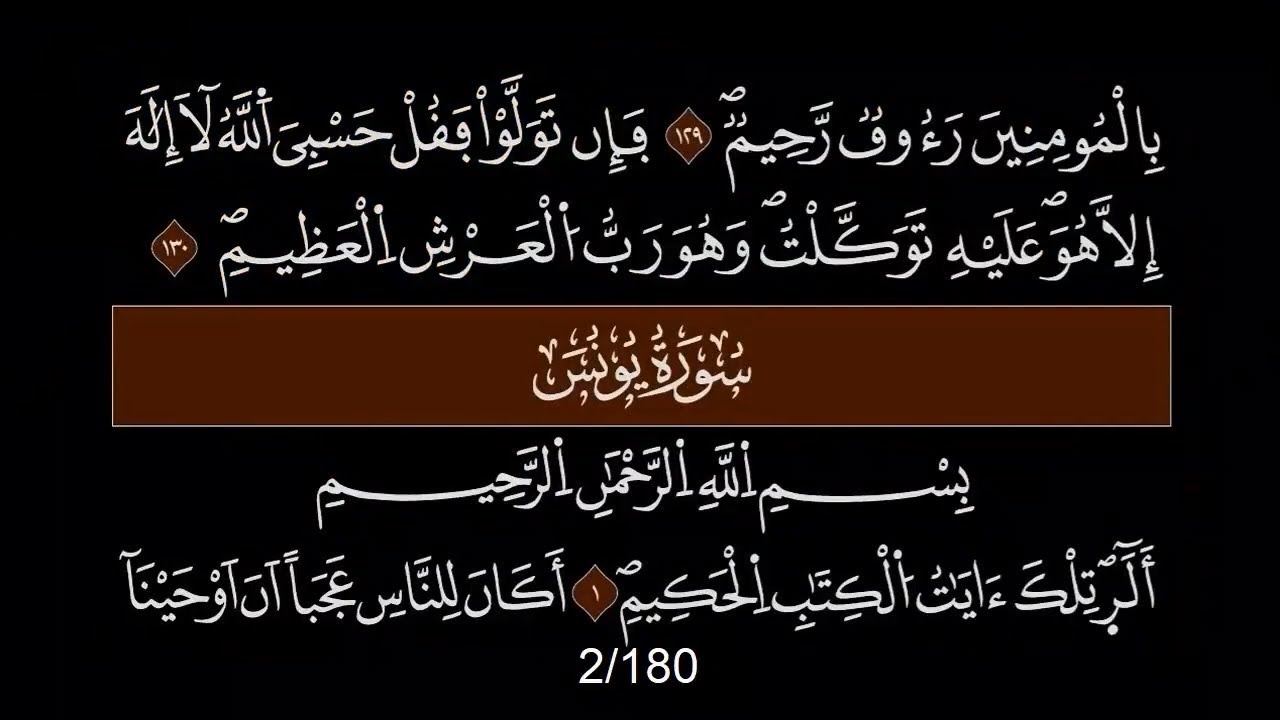 بِالْمُومِنِينَ رَءُوفٌ رَّحِيمٌ ۖ ١٢٩ فَإِن تَوَلَّوْاْ فَقُلْ حَسْبِىَ اَ۬للَّهُ لَآ إِلَٰهَ
إِلَّا هُوَ ۖ عَلَيْهِ تَوَكَّلْتُ ۖ وَهُوَ رَبُّ اُ۬لْعَرْشِ اِ۬لْعَظِيمِ ۖ ١٣٠
سُورَةُ يُونُسَ
بِسْمِ اِ۬للَّهِ اِ۬لرَّحْمَٰنِ اِ۬لرَّحِيمِ
أَلَٓرۖ تِلْكَ ءَايَٰتُ اُ۬لْكِتَٰبِ اِ۬لْحَكِيمِ ۖ ١ أَكَانَ لِلنَّاسِ عَجَباً اَنَ اَوْحَيْنَآ
2/180